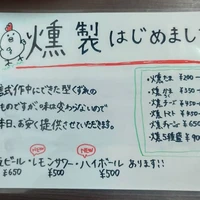 燻製はじめまし
試作中にできた型くずれの
ものですが、味は変わらないので
本日、お安く提供させていただきます。
・燻たま ¥200
・燻 ¥350
・燻チーズ ¥450
・燻トマト ¥450
・燻 ¥650
・燻5種盛 ¥900
NEW NEW
ビール・レモンサワー・ハイボール あります!!
¥650 ¥500 ¥500